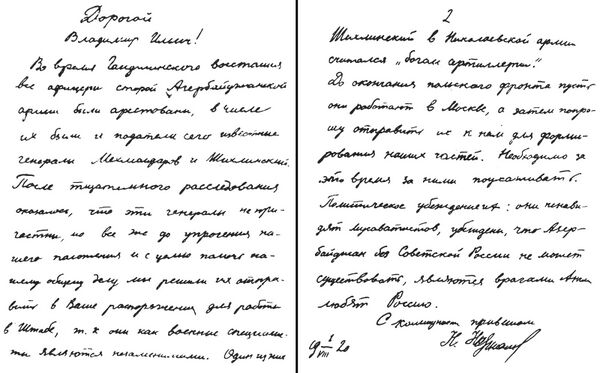 Дорогой
Владимир Ильич!
Во время Гянджинского восстания
все офицеры старой Азербайджанской
армии были арестованы, в числе
их были и податели сего известные
генералы Мехмандаров и Шихлинский.
После тщательного расследования
оказалось, что эти генералы не при-
частны, но все же до упрочения на-
шего положения и с целью помочь на-
шему общему делу мы решили их отпра-
вить в Ваше распоряжение для работы
в Штабе, т.к они как военные специалис-
ты являются незаменимыми. Один из них
2
Шихлинский в Николаевской армии
считался "богом артиллерии".
До окончания польского фронта пусть
они работают в Москве, а затем попро-
шу отправить их к нам для форми-
рования наших частей. Необходимо за
это время за ними поухаживать.
Политическое убеждение их: они ненави-
дят мусаватистов, убеждены, что Азер-
байджан без Советской России не может
существовать, являются врагами Англии
любят Россию.
С коммунист. приветом
Н. Нариманов
1
VIII 20